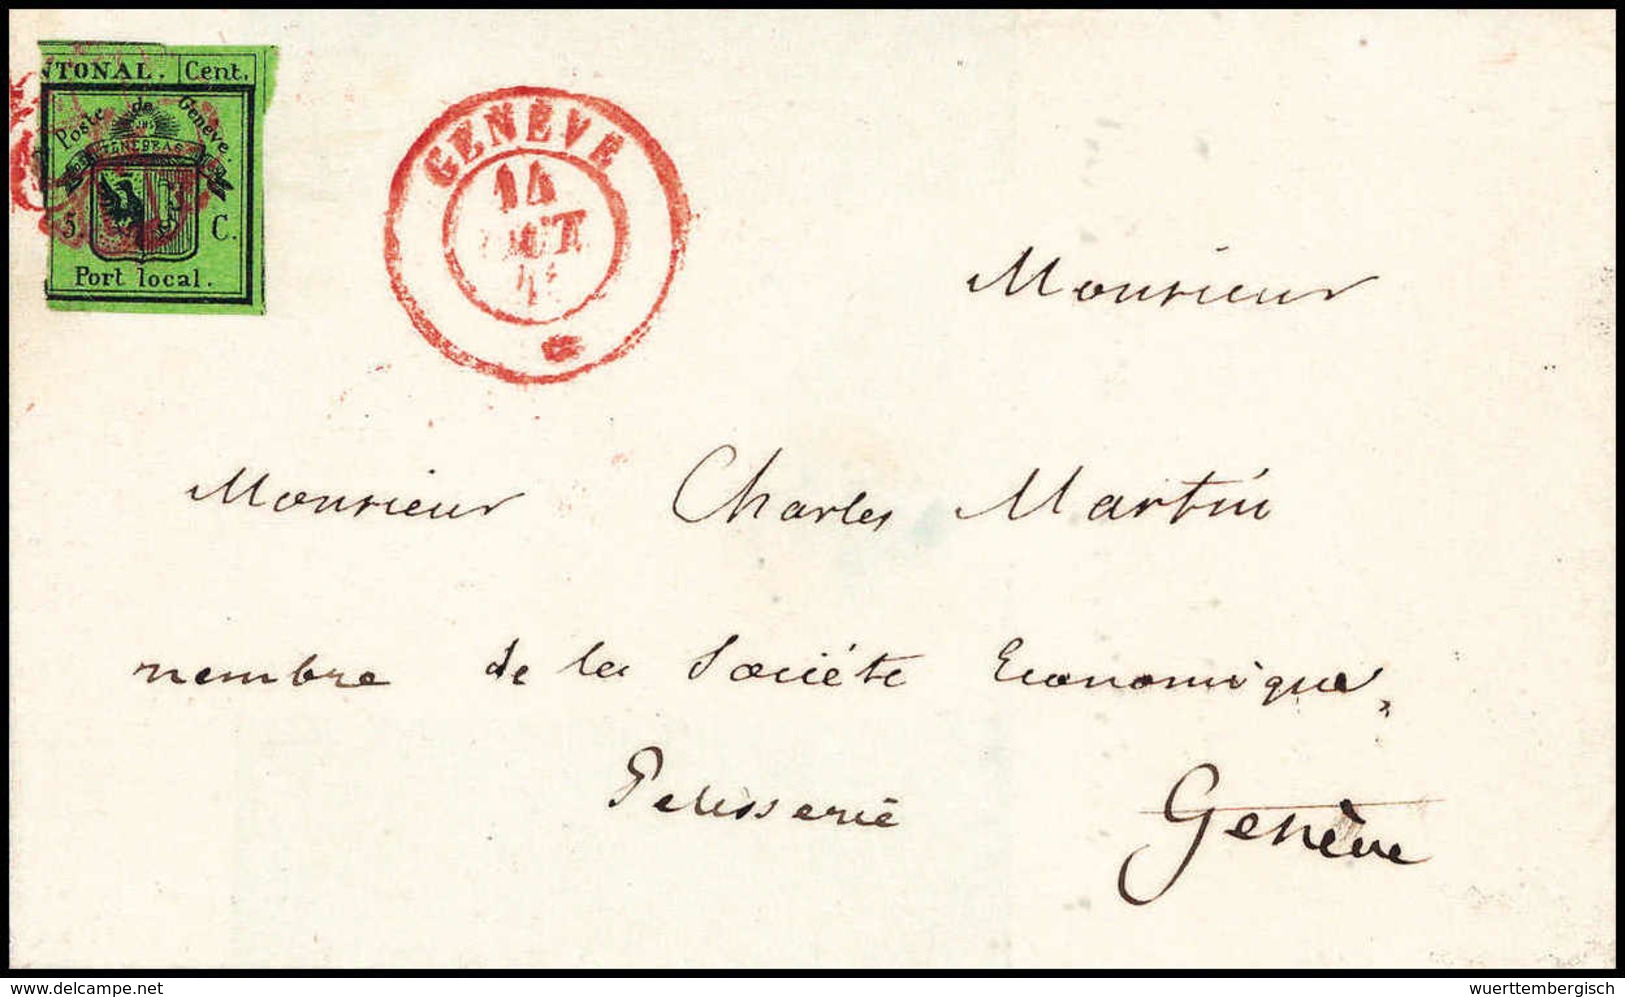 NTONAL. Cent.
Poste de Genève.
TENEBRAS
5 C.
Port local.
GENÈVE
14
Monsieur
Monsieur Charles Martin
membre de la Société Economique,
Pelisserie Genève
delcampe.net
wuerttembergisch